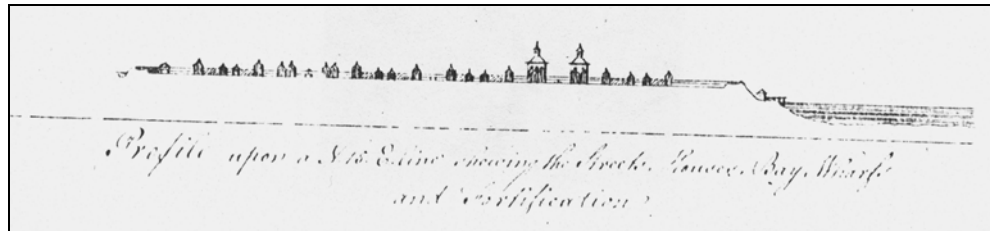 Profile upon a N 18 E. line shewing the Streets, Houses, Bay, Wharf
and Fortification